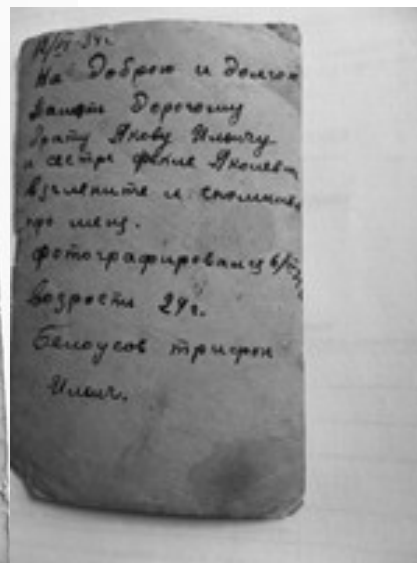 12/VI-34г.
На Доброю и долгою
Память Дорогому
Брату Якову Ильичу
и сестре Фекле Яколевн
взгляните и спомните
про меня.
фотографировался 6/VI
возрасти 24г.
Белоусов трифон
Ильич.